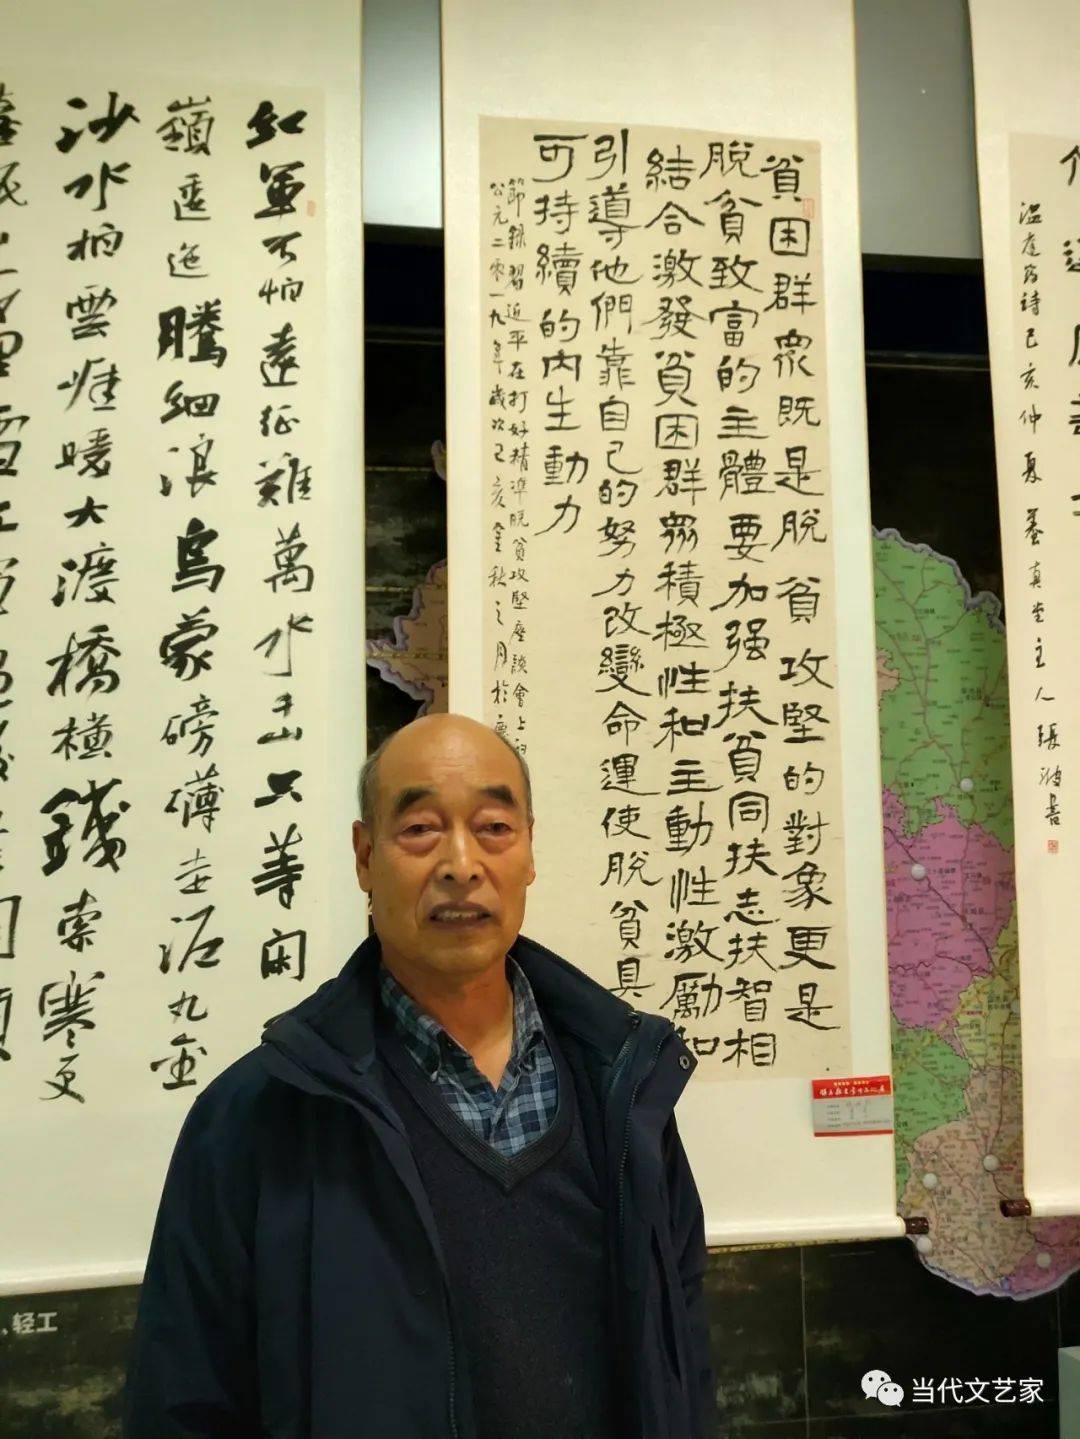 温庭筠詩己亥仲夏養真堂主人張波書
貧困群衆既是脫貧攻堅的對象更是
脫貧致富的主體要加强扶貧同扶志扶智相
結合激發貧困群衆積極性和主動性激勵和
引導他們靠自己的努力改變命運使脫貧具
可持續的内生動力
節錄習近平在打好精準脫貧攻堅座談會上
公元二零一九年歲次己亥金秋之月於
紅軍不怕遠征難萬水千山只等閑
嶺逶迤騰細浪烏蒙磅礴走泥丸金
沙水拍雲崖暖大渡橋橫鐵索寒更
、轻工
当代文艺家